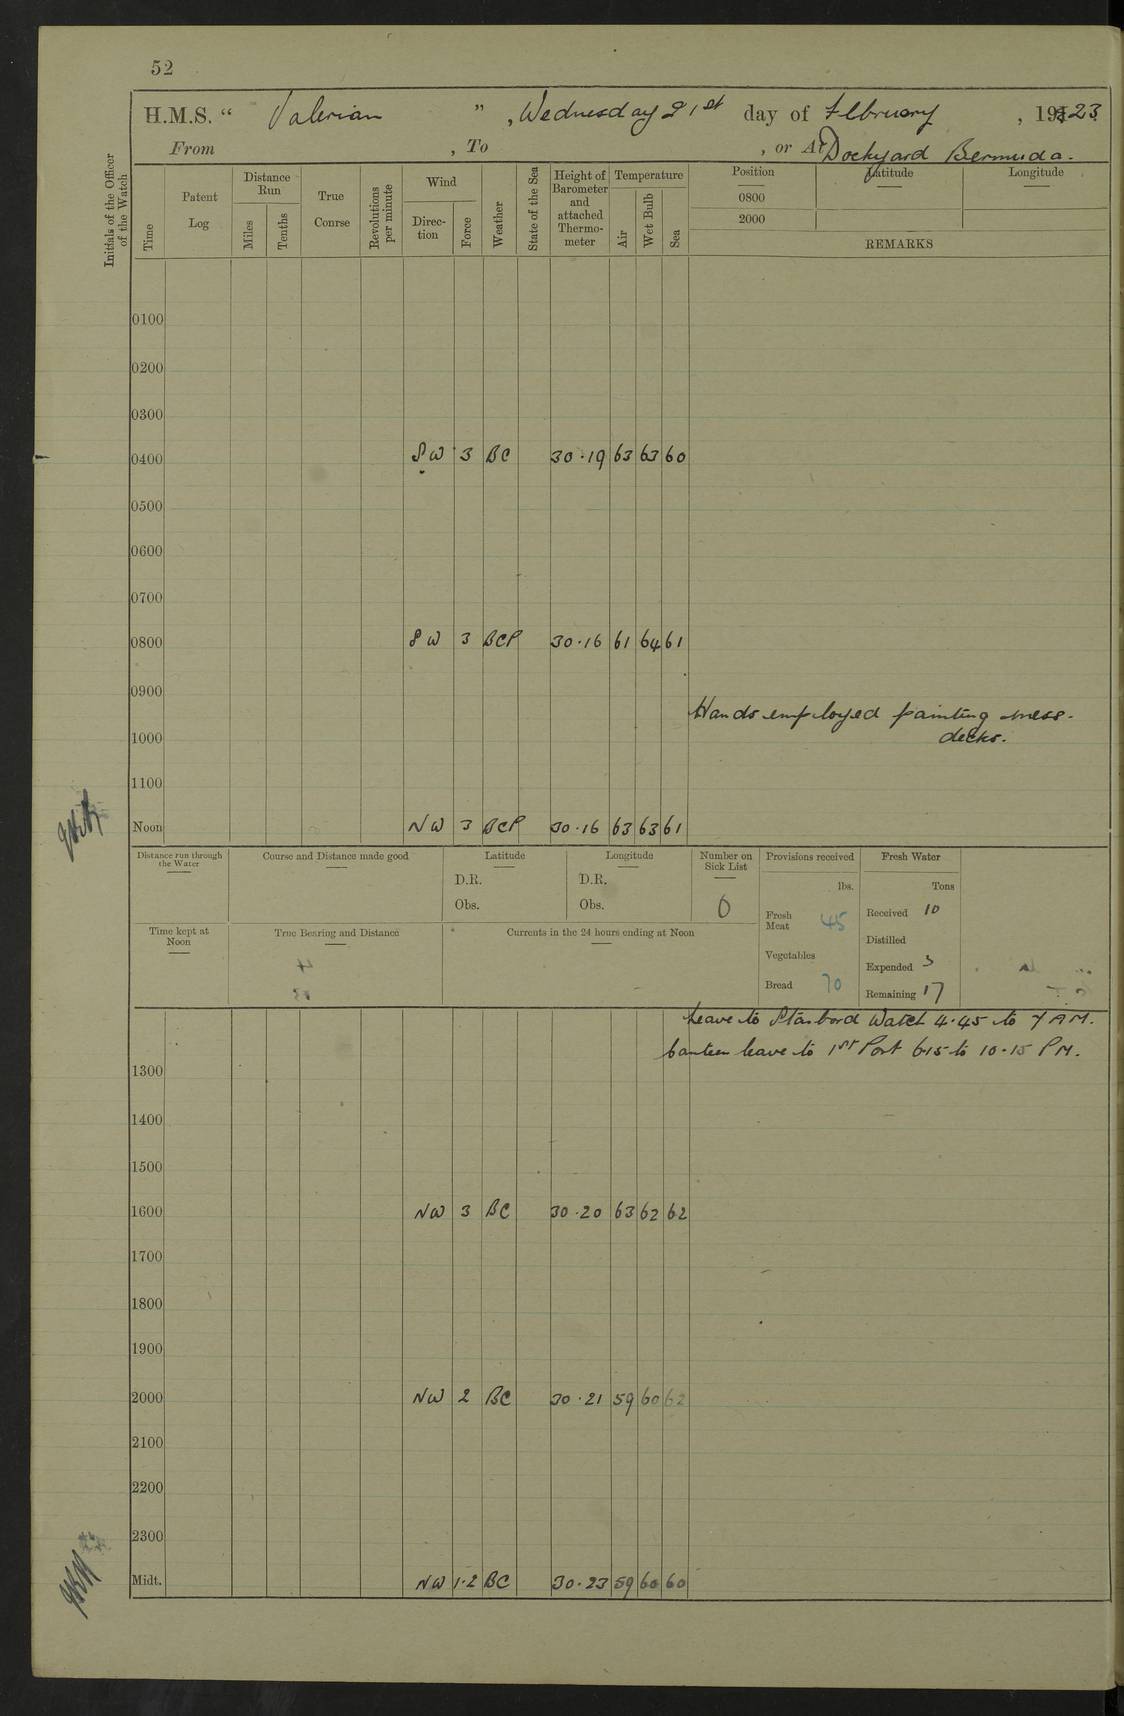 52
H.M.S. " Valerian ", Wednesday 21st day of February, 1923.
From , To , or At Dockyard Bermuda.
Initials of the Officer of the Watch
Time
Patent Log
Distance Run
Miles
Tenths
True Course
Revolutions per minute
Wind
Direc-tion
Force
Weather
State of the Sea
Height of Barometer and attached Thermo-meter
Temperature
Air
Wet Bulb
Sea
Position Latitude Longitude
0800
2000
REMARKS
0100
0200
0300
0400 SW 3 BC 30.19 63 63 60
0500
0600
0700
0800 SW 3 BCP 30.16 61 64 61
0900
Hands employed painting mess-
decks.
1000
1100
Noon NW 3 BCP 30.16 63 63 61
Distance run through the Water
Course and Distance made good
Latitude
D.R.
Obs.
Longitude
D.R.
Obs.
Number on Sick List
0
Provisions received
lbs.
Fresh Meat 45
Vegetables
Bread 70
Fresh Water
Tons
Received 10
Distilled
Expended 3
Remaining 17
Time kept at Noon
True Bearing and Distance
Currents in the 24 hours ending at Noon
Leave to Starbord Watch 4.45 to 7 AM.
Canteen leave to 1st Part 6.15 to 10.15 PM.
1300
1400
1500
1600 NW 3 BC 30.20 63 62 62
1700
1800
1900
2000 NW 2 BC 30.21 59 60 62
2100
2200
2300
Midt. NW 1.2 BC 30.23 59 60 60